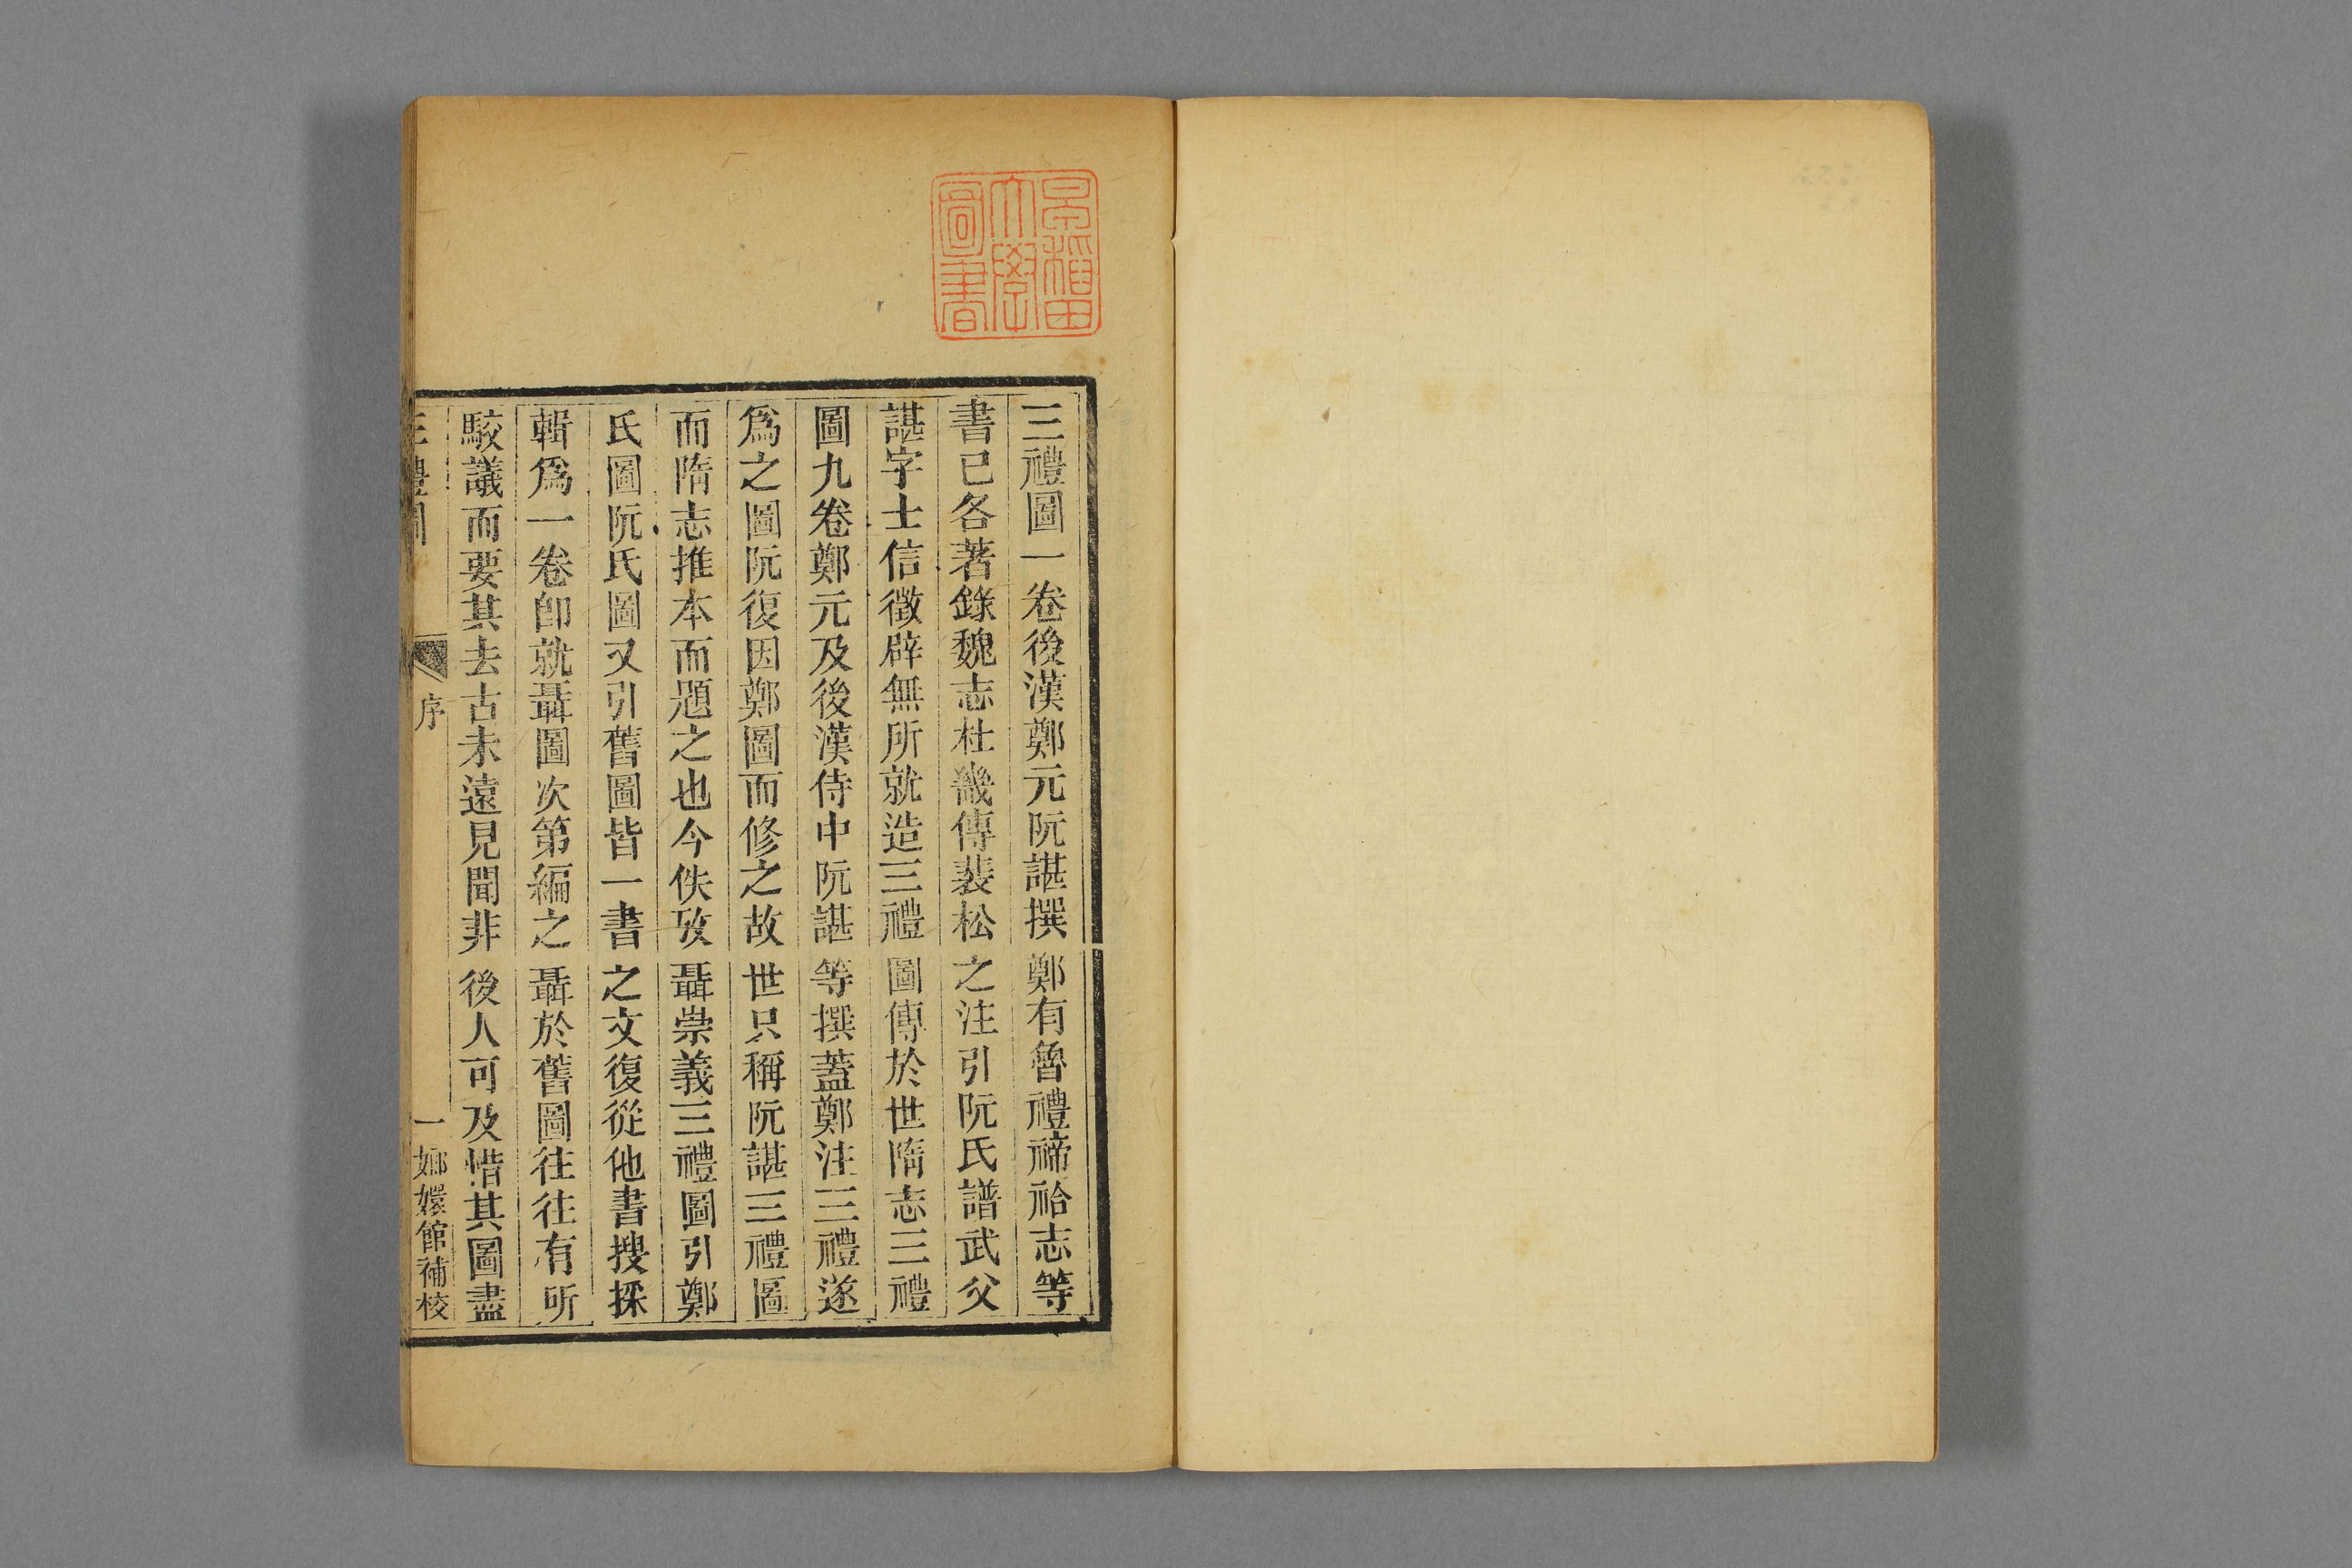 早稲田
大學
圖書
三禮圖一卷後漢鄭元阮諶撰鄭有魯禮禘祫志等
書已各著錄魏志杜畿傳裴松之注引阮氏譜武父
諶字士信徵辟無所就造三禮圖傳於世隋志三禮
圖九卷鄭元及後漢侍中阮諶等撰蓋鄭注三禮遂
爲之圖阮復因鄭圖而修之故世只稱阮諶三禮圖
而隋志推本而題之也今佚攷聶崇義三禮圖引鄭
氏圖阮氏圖又引舊圖皆一書之文復從他書搜採
輯爲一卷卽就聶圖次第編之聶於舊圖往往有所
駮議而要其去古未遠見聞非後人可及惜其圖盡
三禮圖 序 一 嫏嬛館補校